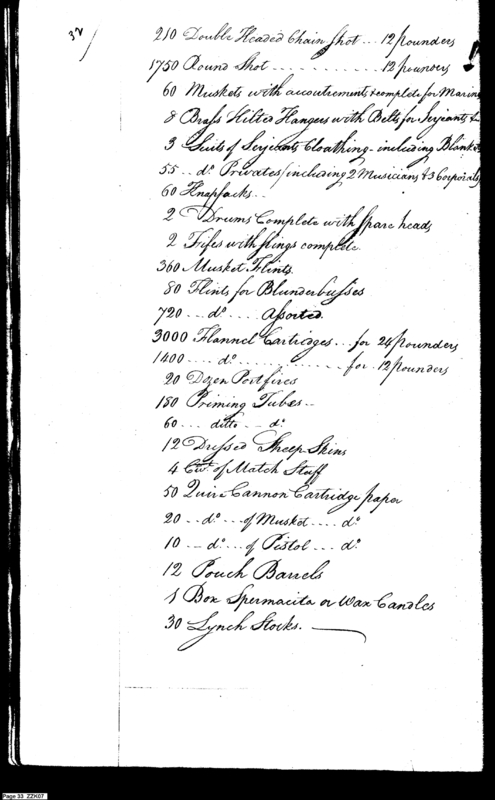 32
210 Double Headed Chain Shot ... 12 pounders
1750 Round Shot . . . . . . . . . . 12 pounders
60 Muskets with accoutrements & complete for Marines
8 Brass Hilted Hangers with Belts for Serjeants &c
3 Suits of Serjeants Cloathing - including Blankets
55 .. do. Privates (including 2 Musicians & 3 Corporals)
60 Knapsacks ..
2 Drums Complete with spare heads
2 Fifes with slings complete.
360 Musket Flints.
80 Flints for Blunderbusses
720 ... do. .... Assorted.
3000 Flannel Cartridges ... for 24 pounders
1400 .... do. . . . . . . . . . . . for 12 pounders
20 Dozen Portfires
150 Priming Tubes ..
60 ... ditto .. do.
12 Dressed Sheep Skins
4 Cwt. of Match Stuff
50 Quire Cannon Cartridge paper
20 .. do. ... of Musket .... do.
10 .. do. ... of Pistol ... do.
12 Pouch Barrels
1 Box Spermacita or Wax Candles
30 Lynch Stocks.
Page 33 ZZK07